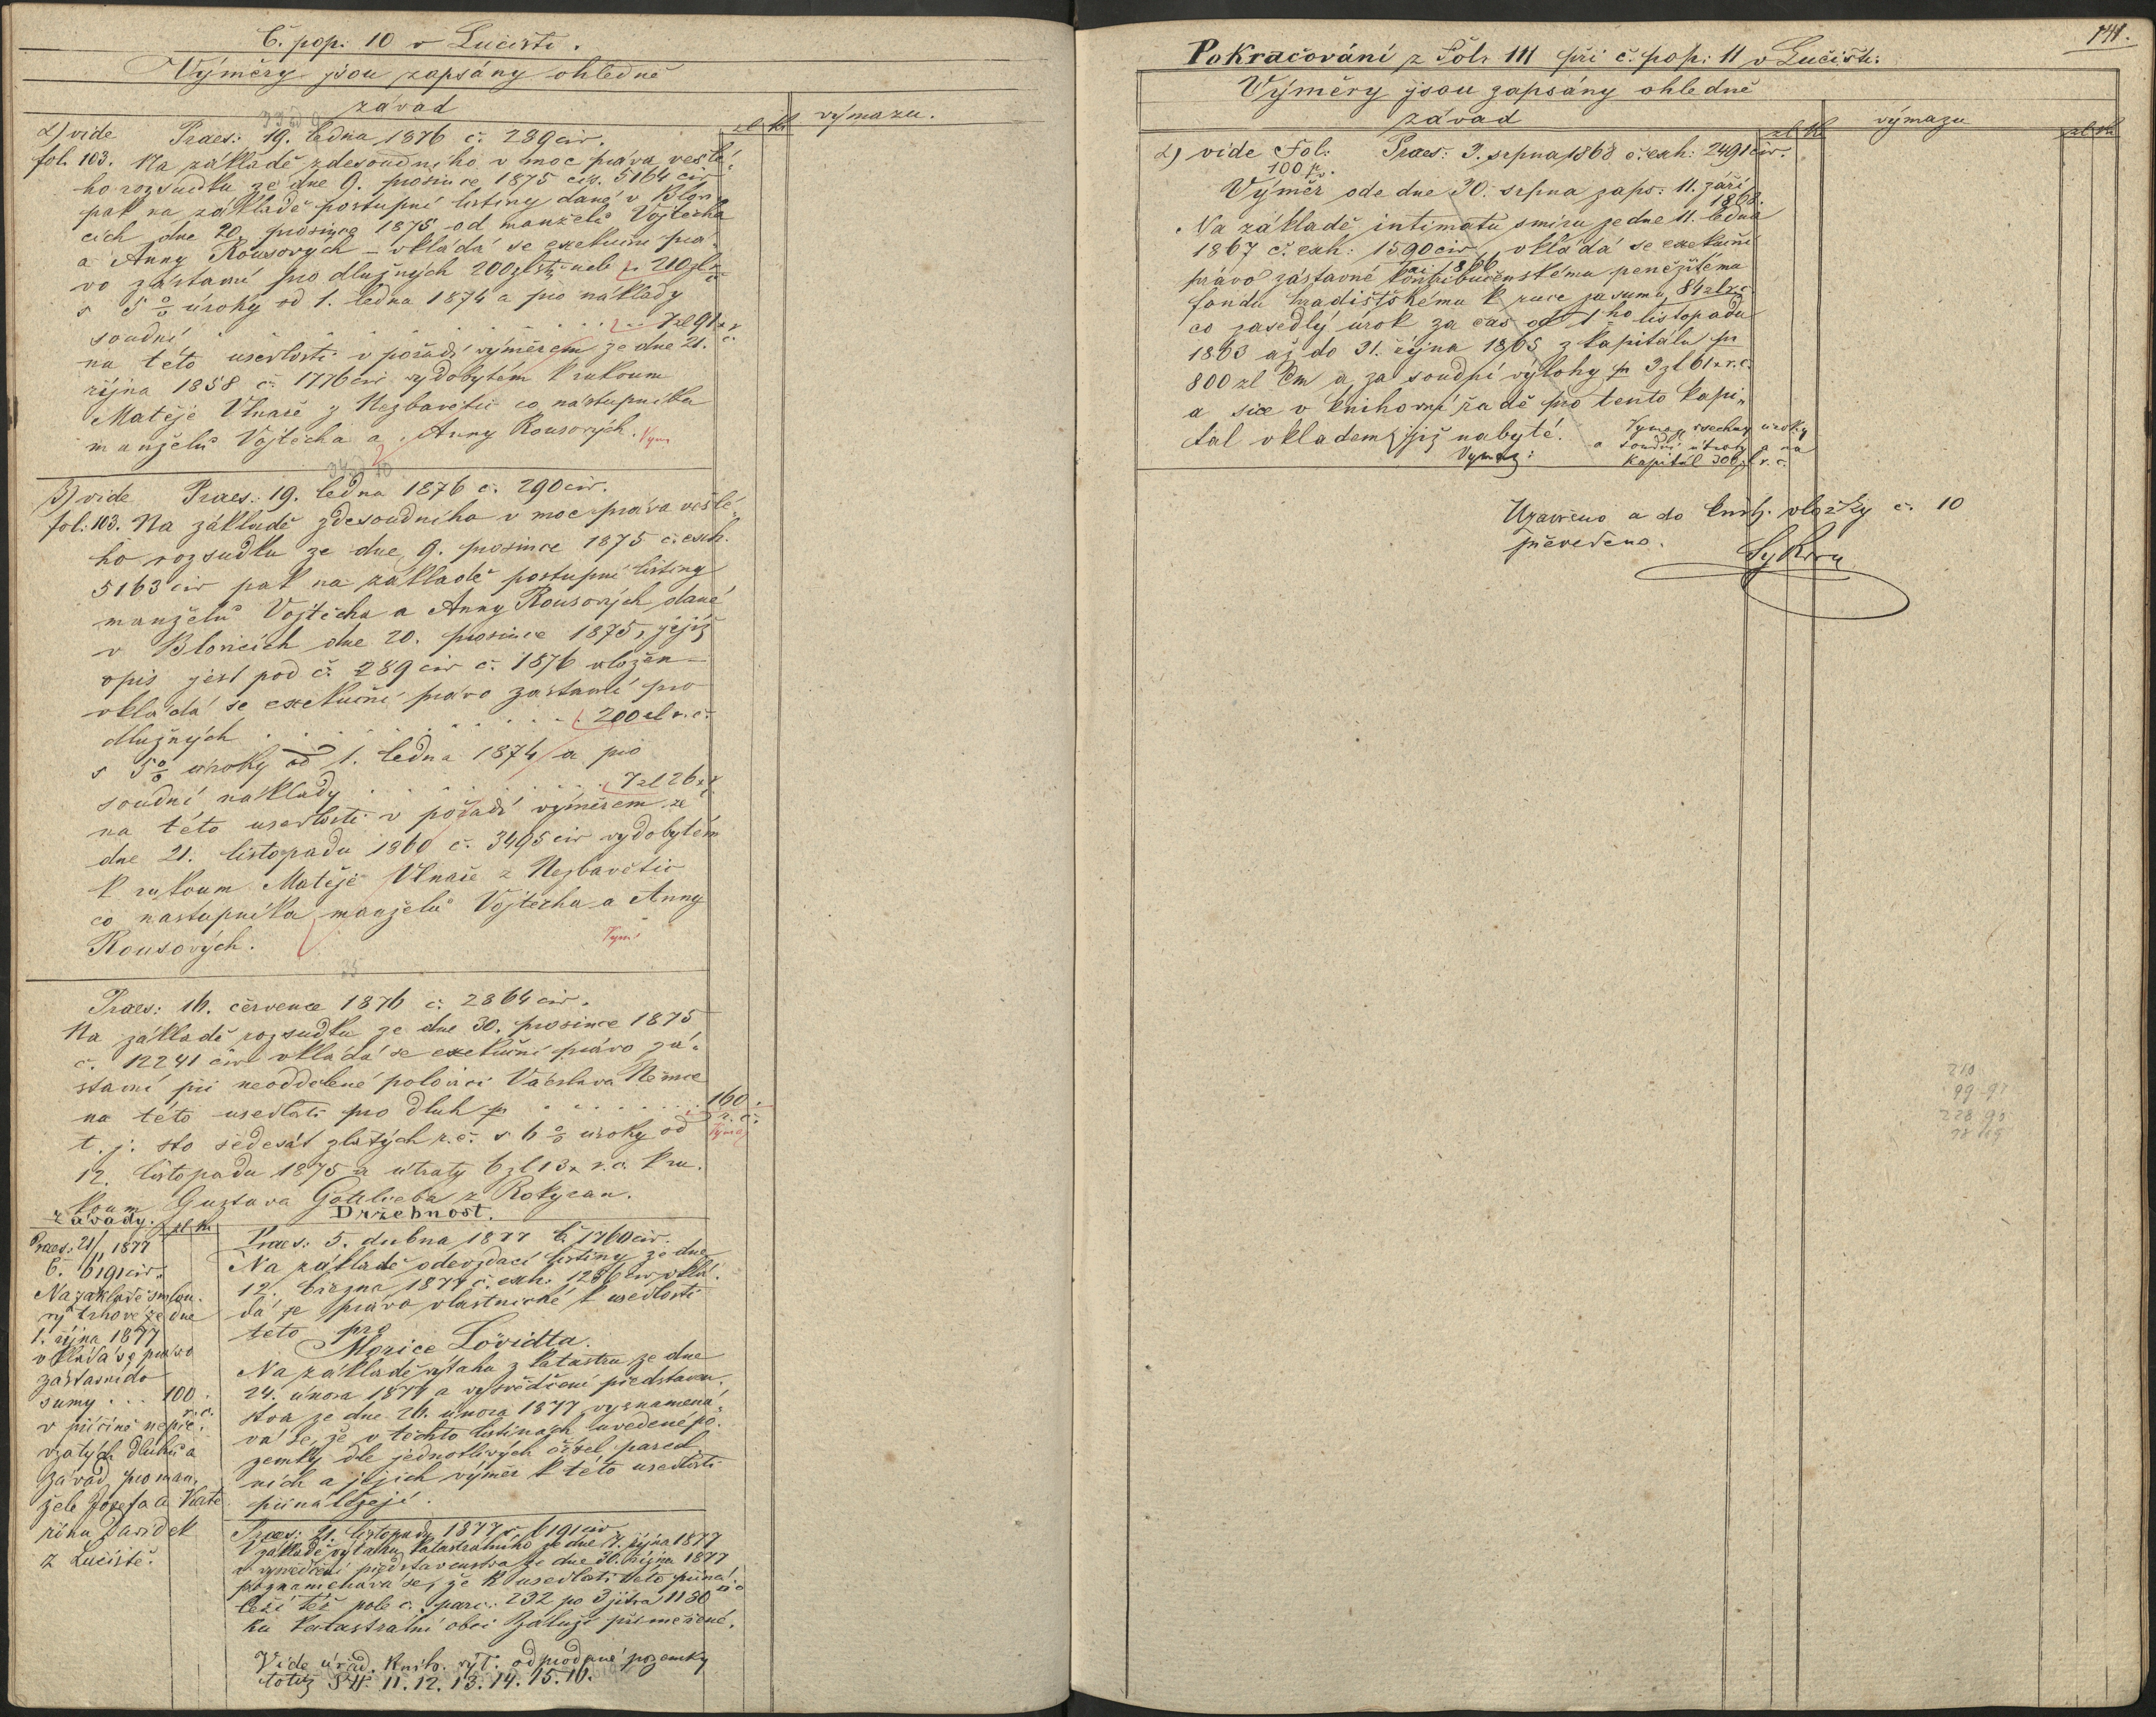 Č. pop. 10 v Lučišti.
Výměry jsou zapsány ohledně
závad
zl kr
výmazu.
α) vide Praes: 19. ledna 1876 č. 289 civ.
fol. 103. Na základě zdesoudního v moc práva vešlé-
ho rozsudku ze dne 9. prosince 1875 čis. 5164 civ
pak na základě postupní listiny dané v Blov
cích dne 20. prosince 1875 od manželů Vojtěcha
a Anny Rousových – vkládá se exekuční prá-
vo zástavní pro dlužných 200 zl stř. neb pr 210 zl r.č.
s 5% úroky od 1. ledna 1874 a pro náklady
soudní . . . . . . . . . . 7 zl 91 x r.č.
na této usedlosti v pořadí výměrem ze dne 21.
října 1858 č. 1776 civ vydobytém k rukoum
Matěje Vlnaše z Nezbavětic co nástupníka
manželů Vojtěcha a Anny Rousových. Vym
β) vide Praes: 19. ledna 1876 č. 290 civ.
fol: 103. Na základě zdesoudního v moc práva vešlé-
ho rozsudku ze dne 9. prosince 1875 č. exh.
5163 civ pak na základě postupní listiny
manželů Vojtěcha a Anny Rousových dané
v Blovicích dne 20. prosince 1875, jejíž
opis jest pod č. 289 civ č. 1876 vložen –
vkládá se exekuční právo zástavní pro
dlužných . . . . . . . . 200 zl r.č.
s 5% úroky od 1. ledna 1874 a pro
soudní náklady . . . . . . . 7 zl 26 x
na této usedlosti v pořadí výměrem ze
dne 21. listopadu 1860 č. 3495 civ vydobytém
k rukoum Matěje Vlnaše z Nezbavětic
co nástupníka manželů Vojtěcha a Anny
Rousových.
35
Praes: 16. července 1876 č. 2864 civ.
Na základě rozsudku ze dne 30. prosince 1875
č. 12241 civ vkládá se exekuční právo zá-
stavní při neoddělené polovici Václava Němce
na této usedlosti pro dluh pr . . . . . . . 160.
r. č.
t. j. sto šedesát zlatých r.č. s 6% úroky od Vymaz
12. listopadu 1875 a útraty 6 zl 13 x r.č. k ru-
koum Gustava Gottlieba z Rokycan.
Závady. zl kr
Praes: 21/11 1877
Č. 6191 civ.
Na základě smlou-
vy trhové ze dne
1. října 1877
vkládá se právo
zástavní do
sumy . . . 100.
r.č.
v příčině nepře-
vzatých dluhů a
závad pro man-
žele Josefa a Kate
řinu Davídek
z Lučiště.
Držebnost.
Praes: 5. dubna 1877 č. 1760 civ.
Na základě odevzdací listiny ze dne
12. března 1877 č. exh. 1286 civ vklá-
dá se právo vlastnické k usedlosti
této pro
Morice Lövidta.
Na základě výtahu z katastru ze dne
24. února 1877 a vysvědčení představen-
stva ze dne 26. února 1877 vyznamená-
vá se, že v těchto listinách uvedené po-
zemky dle jednotlivých čísel parcel-
ních a jejich výměr k této usedlosti
přináležejí.
Praes: 21. listopadu 1877 č. 6191 civ
V základě výtahu katastrálního ze dne 7. října 1877
a vysvědčení představenstva ze dne 30. října 1877
poznamenává se, že k usedlosti této přiná-
leží též pole č. parc. 232 po 3 jitra 1180 □°
ku katastrální obci Záluží přiměřené.
Vide úřad. knih. výt. odprodané pozemky
totiž 11. 12. 13. 14. 15. 10.
141.
Pokračování z Fol. 111 při č. pop: 11 v Lučišti:
Výměry jsou zapsány ohledně
závad
zl kr
výmazu
zl kr
α) vide Fol: Praes: 3. srpna 1868 č. exh: 2491 civ.
100 pv.
Výměr ode dne 30. srpna zaps: 11. září
1868.
Na základě intimatu smíru ze dne 11. ledna
1867 č. exh: 1590 civ ai 1866 vkládá se exekuční
právo zástavné kontribučenskému peněžitému
fondu hradištskému k ruce za sumu 84 zl r.č.
co zasedlý úrok za čas od 1ho listopadu
1863 až do 31. října 1865 z kapitálu pr
800 zl Cm a za soudní výlohy pr 3 zl 61 x r.č.
a sice v knihovní řadě pro tento kapi-
tál vkladem již nabyté.
Vymaz:
Vymaz všechny úroky
a soudní útraty a na
kapitál 300 zl r. č.
Uzavřeno a do knih. vložky č. 10
převedeno.
Sykora
210
228 90